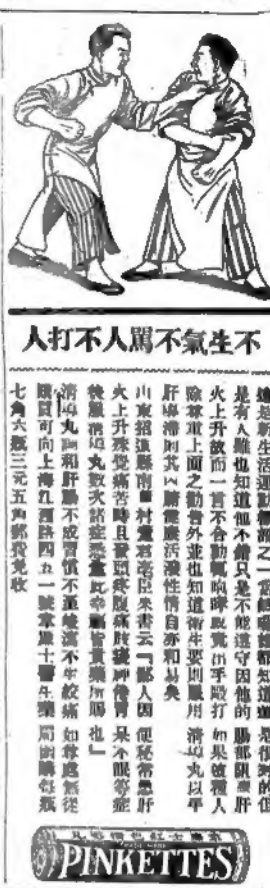 不生氣不罵人不打人
這是新生活運動標語之一當歸誰都知道 是很好的但
是有人雖也知道他不錯只是不能遵守因他的腸部閉塞肝
火上升故而一言不合動輒咆哮跳竟出手毆打如果這種人
除尊重上面之勸告外並也知道衛生要則服用清導丸以平
肝導滯則其人臟腑靈活性情自亦和易矣
山東招遠縣南 村 君 臣來書云「鄙人因便秘常患肝
火上升殊覺痛苦時且發頭疼腹痛肢 神倦胃呆不眠等症
後服清導丸數次諸症悉 此幸 皆貴藥所賜也」
清導丸調和肝腸不成習慣不至峻瀉不生絞痛如尊處無從
購買可向上海江西路四五一號韋廉士醫生藥局函購每瓶
七角六瓶三元五角郵費免收
韋廉士紅色清導丸
PINKETTES